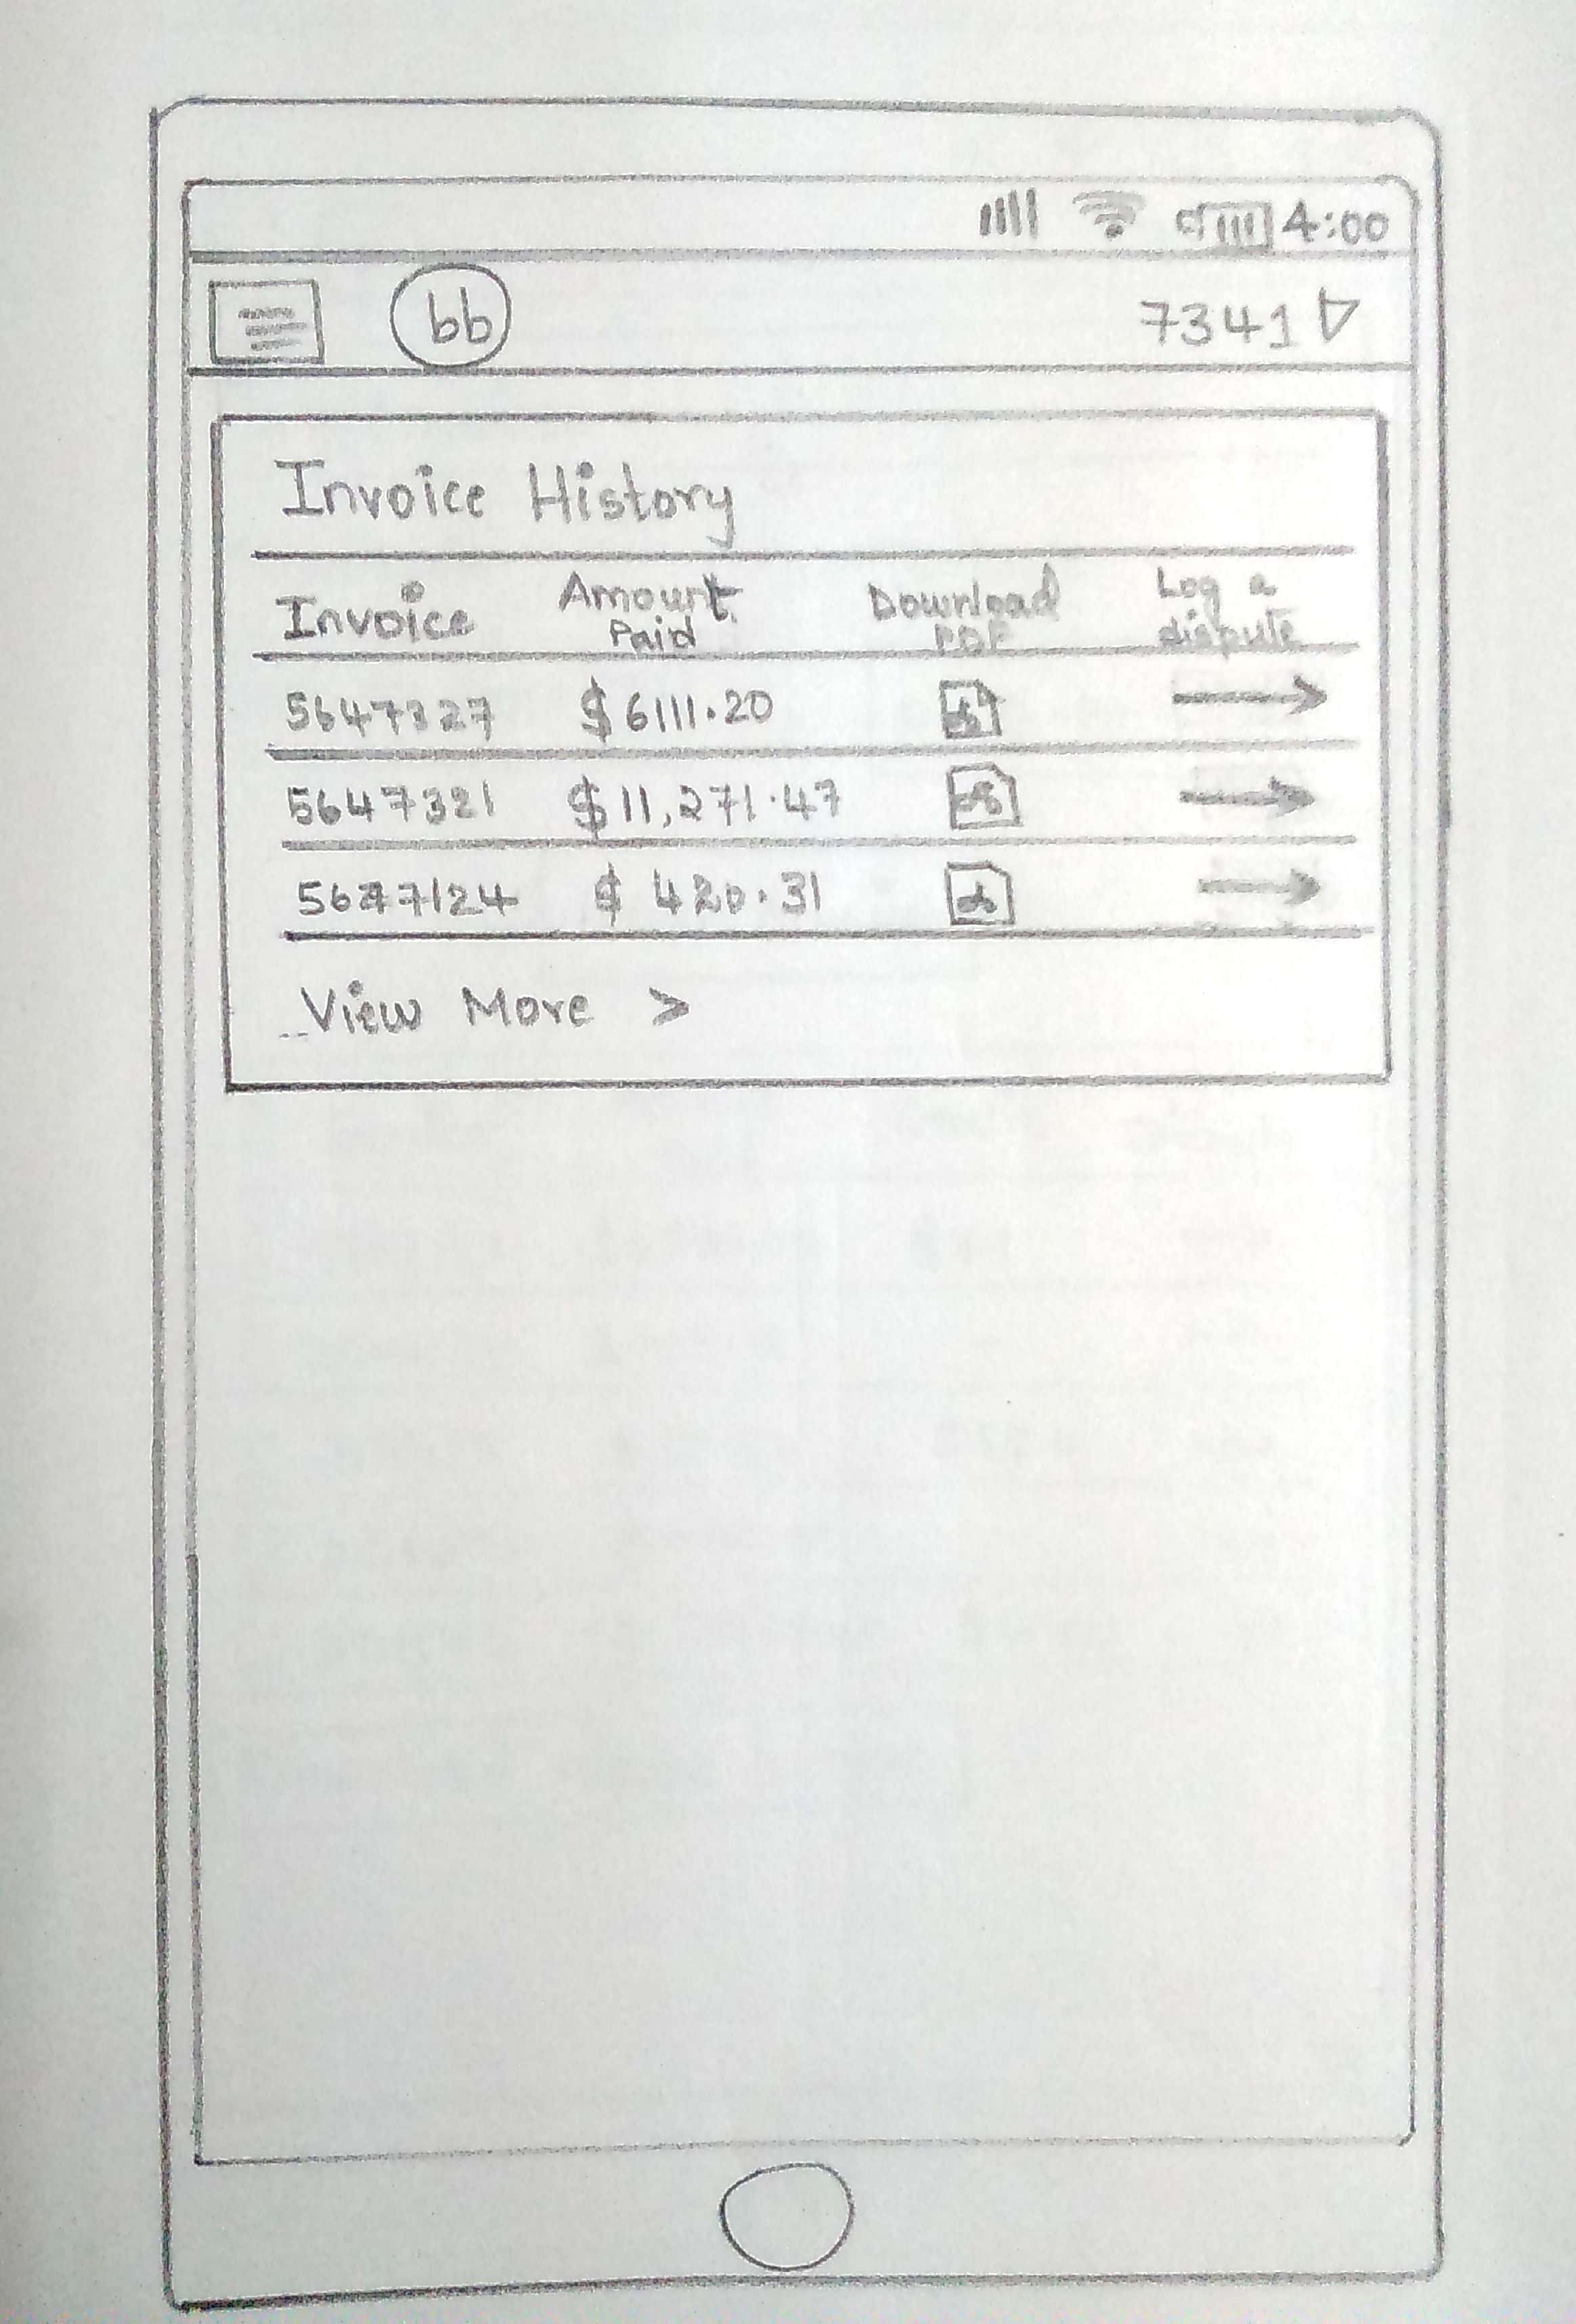 4:00
bb 7341
Invoice History
Invoice Amount Paid Download PDF Log a dispute
5647327 $6111.20
5647321 $11,271.47
$ 420.31
View More >